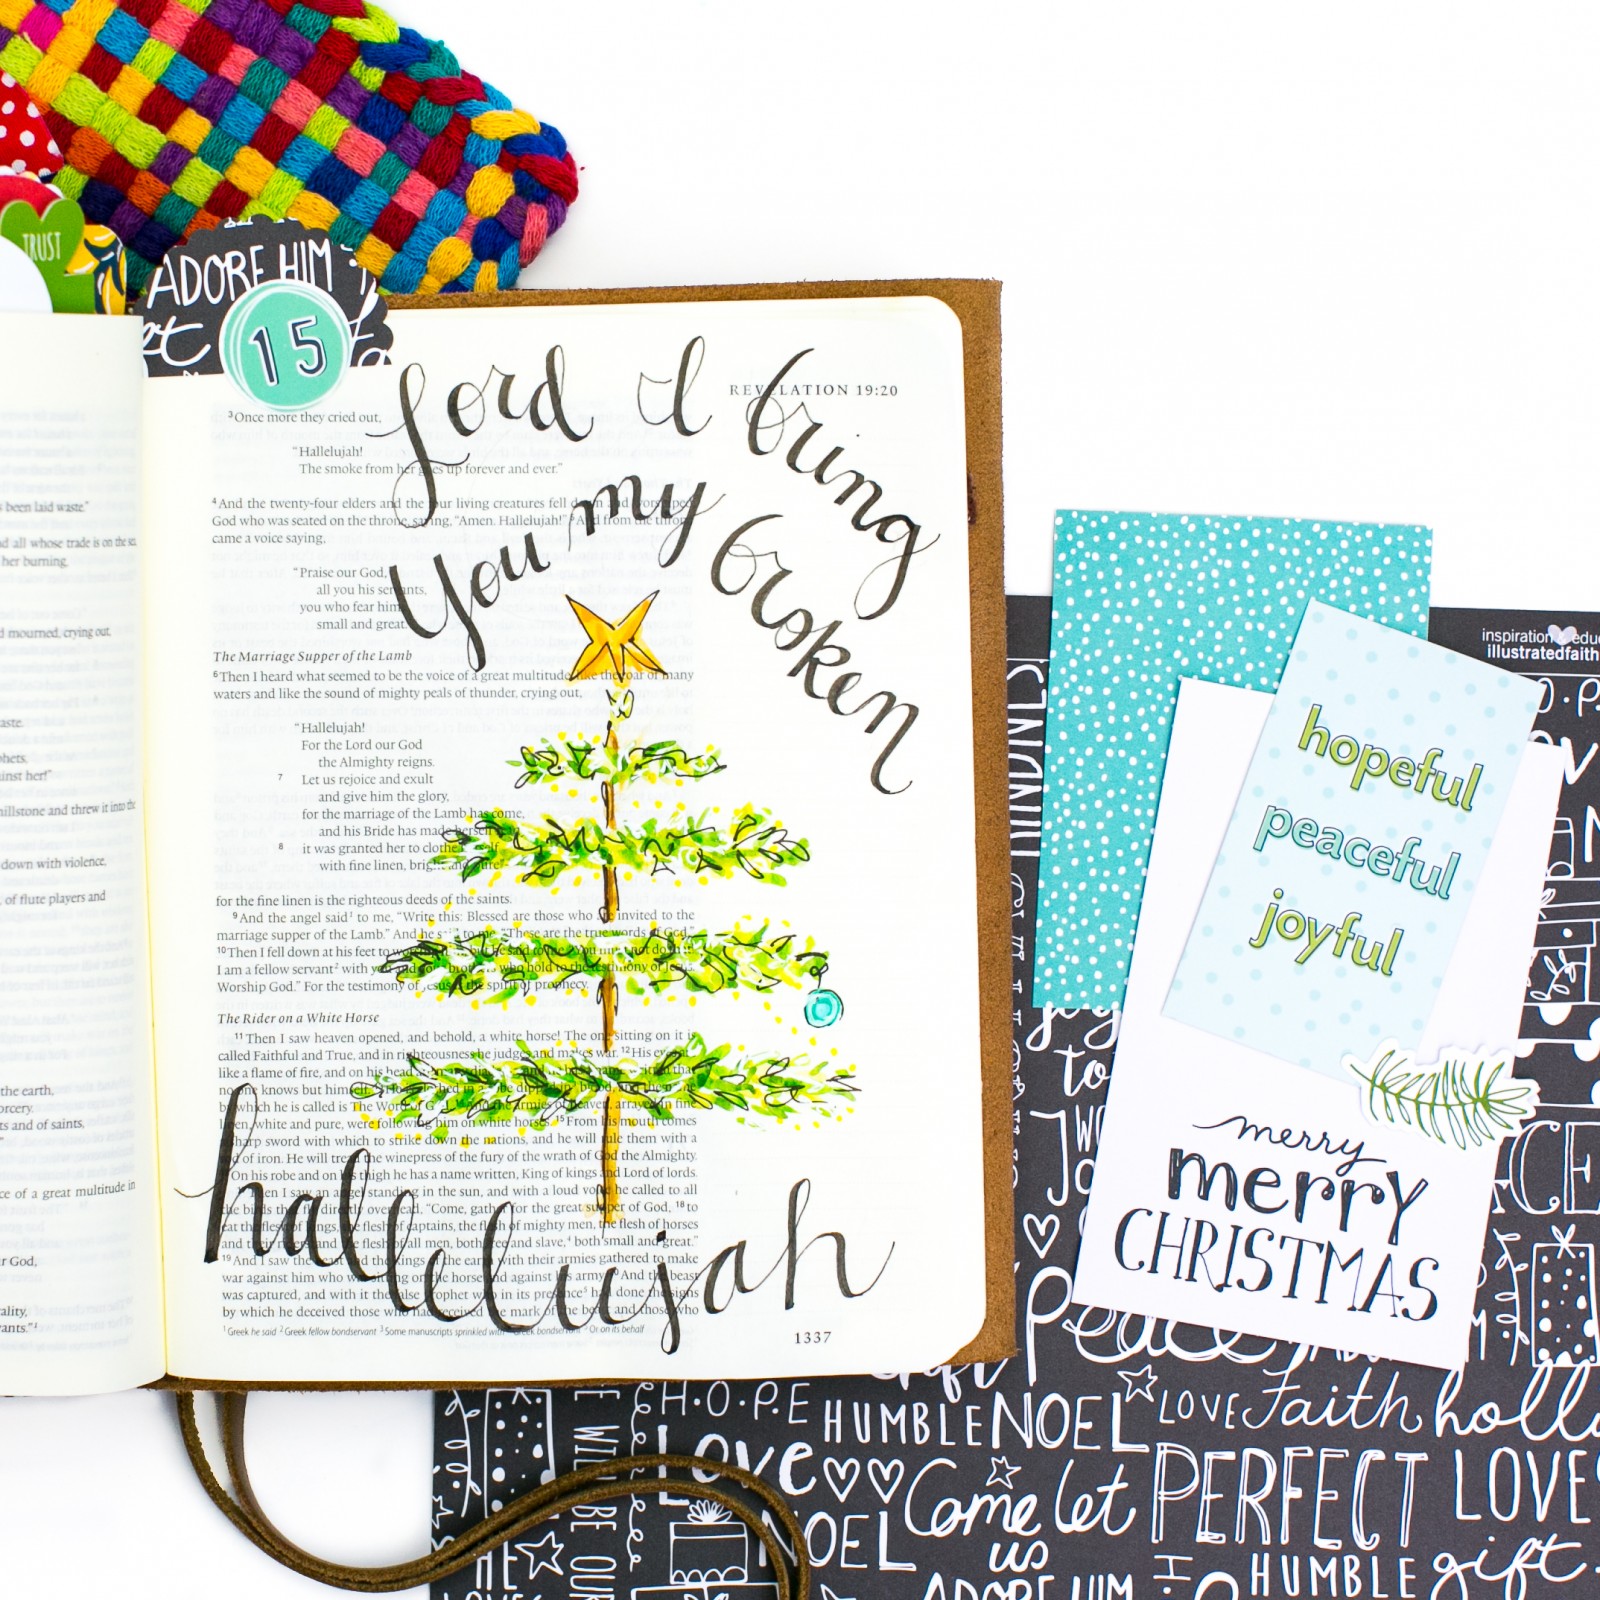 TRUST
ADORE HIM
15
Lord I bring
you my broken
hallelujah
REVELATION 19:20
3 Once more they cried out,
"Hallelujah!
The smoke from her goes up forever and ever."
4 And the twenty-four elders and the four living creatures fell down and worshiped
God who was seated on the throne, saying, "Amen. Hallelujah!" 5 And from the throne
came a voice saying,
"Praise our God,
all you his servants,
you who fear him,
small and great."
The Marriage Supper of the Lamb
6 Then I heard what seemed to be the voice of a great multitude, like the roar of many
waters and like the sound of mighty peals of thunder, crying out,
"Hallelujah!
For the Lord our God
the Almighty reigns.
7 Let us rejoice and exult
and give him the glory,
for the marriage of the Lamb has come,
and his Bride has made herself
8 it was granted her to clothe herself
with fine linen, bright and pure"
for the fine linen is the righteous deeds of the saints.
9 And the angel said1 to me, "Write this: Blessed are those who are invited to the
marriage supper of the Lamb." And he said to me, "These are the true words of God."
10 Then I fell down at his feet to worship him, but he said to me, "You must not do that!
I am a fellow servant2 with you and your brothers who hold to the testimony of Jesus.
Worship God." For the testimony of Jesus is the spirit of prophecy.
The Rider on a White Horse
11 Then I saw heaven opened, and behold, a white horse! The one sitting on it is
called Faithful and True, and in righteousness he judges and makes war. 12 His eyes are
like a flame of fire, and on his head are many diadems, and he has a name written that
no one knows but himself. 13 He is clothed in a robe dipped in blood, and the name
by which he is called is The Word of God. 14 And the armies of heaven, arrayed in fine
linen, white and pure, were following him on white horses. 15 From his mouth comes
a sharp sword with which to strike down the nations, and he will rule them with a
rod of iron. He will tread the winepress of the fury of the wrath of God the Almighty.
On his robe and on his thigh he has a name written, King of kings and Lord of lords.
Then I saw an angel standing in the sun, and with a loud voice he called to all
the birds that fly directly overhead, "Come, gather for the great supper of God, 18 to
eat the flesh of kings, the flesh of captains, the flesh of mighty men, the flesh of horses
and their riders, and the flesh of all men, both free and slave,4 both small and great."
19 And I saw the beast and the kings of the earth with their armies gathered to make
war against him who was sitting on the horse and against his army. 20 And the beast
was captured, and with it the false prophet who in its presence5 had done the signs
by which he deceived those who had received the mark of the beast and those who
1 Greek he said 2 Greek fellow bondservant 3 Some manuscripts sprinkled with 4 Greek bondservant 5 Or on its behalf
1337
been laid waste."
all whose trade is on the sea
her burning,
mourned, crying out,
millstone and threw it into the
down with violence,
of flute players and
the earth,
and of saints,
of a great multitude in
God,
inspiration &
illustratedfaith
hopeful
peaceful
joyful
merry
merry
CHRISTMAS
KINDNESS
joy
to
peace
H.O.P.E
HUMBLE
NOEL
LOVE
Faith
holly
Love
Come let
us
ADORE HIM
PERFECT
LOVE
NOEL
HUMBLE
gift
WILL BE OUR